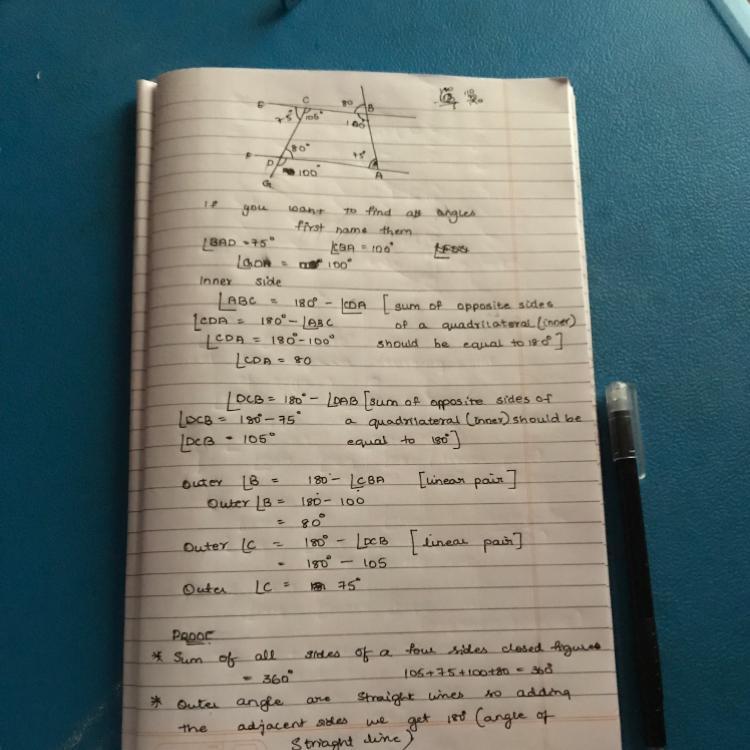 E C 80 B
75° 105° 100°
F 80° 75°
D 100° A
G
If you want to find all angles
first name them
∠BAD = 75° ∠CBA = 100°
∠GDA = 100°
Inner side
∠ABC = 180° - ∠CDA [sum of opposite sides
∠CDA = 180° - ∠ABC of a quadrilateral (inner)
∠CDA = 180° - 100° should be equal to 180°]
∠CDA = 80
∠DCB = 180° - ∠DAB [sum of opposite sides of
∠DCB = 180 - 75° a quadrilateral (inner) should be
∠DCB = 105° equal to 180°]
Outer ∠B = 180° - ∠CBA [linear pair]
Outer ∠B = 180 - 100
= 80°
Outer ∠C = 180° - ∠DCB [linear pair]
= 180° - 105
Outer ∠C = 75°
PROOF
* Sum of all sides of a four sides closed figure
= 360° 105+75+100+80 = 360
* Outer angle are straight lines so adding
the adjacent sides we get 180° (angle of
Striaght line)